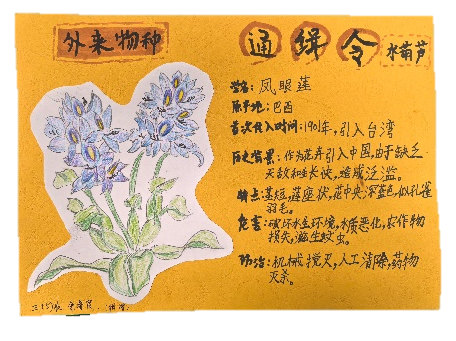 外来物种
通缉令
水葫芦
学名：凤眼莲
原产地：巴西
首次传入时间：1901年，引入台湾
历史背景：作为花卉引入中国，由于缺乏
天敌和生长快，造成泛滥。
特点：茎短，莲座状，花中央深蓝色，似孔雀
羽毛。
危害：破坏水生环境，水质恶化，农作物
损失，滋生蚊虫。
防治：机械搅灭，人工清除，药物
灭杀。